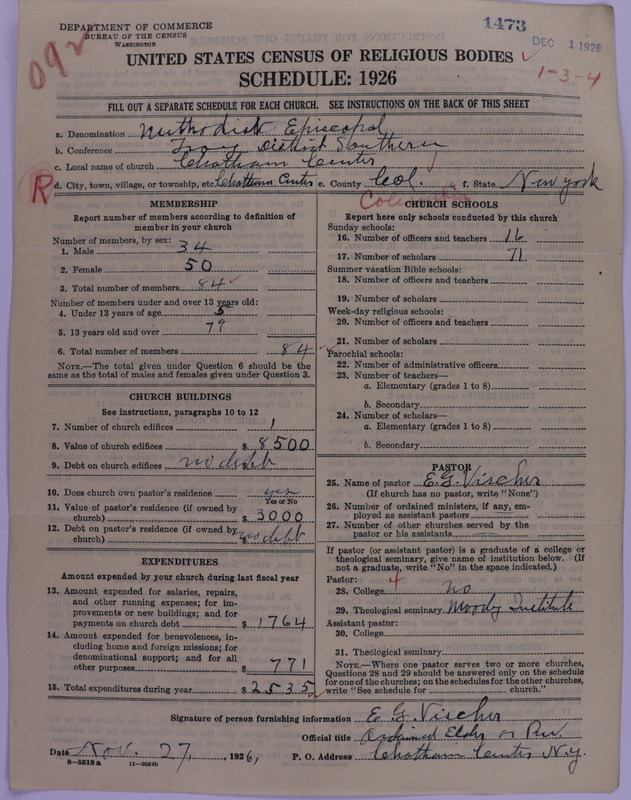 DEPARTMENT OF COMMERCE
BUREAU OF THE CENSUS
WASHINGTON
1473
DEC 1 1926
092
1-3-4
UNITED STATES CENSUS OF RELIGIOUS BODIES
SCHEDULE: 1926
FILL OUT A SEPARATE SCHEDULE FOR EACH CHURCH. SEE INSTRUCTIONS ON THE BACK OF THIS SHEET
a. Denomination Methodist Episcopal
b. Conference Troy District Southern
c. Local name of church Chatham Center
R
d. City, town, village, or township, etc. Chatham Center e. County Col. f. State New York
Columbia
MEMBERSHIP
Report number of members according to definition of
member in your church
Number of members, by sex:
1. Male 34
2. Female 50
3. Total number of members 84
Number of members under and over 13 years old:
4. Under 13 years of age 5
5. 13 years old and over 79
6. Total number of members 84
NOTE.—The total given under Question 6 should be the
same as the total of males and females given under Question 3.
CHURCH BUILDINGS
See instructions, paragraphs 10 to 12
7. Number of church edifices 1
8. Value of church edifices $ 8500
9. Debt on church edifices no debt
10. Does church own pastor's residence yes
Yes or No
11. Value of pastor's residence (if owned by
church) $ 3000
12. Debt on pastor's residence (if owned by
church) no debt
EXPENDITURES
Amount expended by your church during last fiscal year
13. Amount expended for salaries, repairs,
and other running expenses; for im-
provements or new buildings; and for
payments on church debt $ 1764
14. Amount expended for benevolences, in-
cluding home and foreign missions; for
denominational support; and for all
other purposes $ 771
15. Total expenditures during year $ 2535
CHURCH SCHOOLS
Report here only schools conducted by this church
Sunday schools:
16. Number of officers and teachers 16
17. Number of scholars 71
Summer vacation Bible schools:
18. Number of officers and teachers
19. Number of scholars
Week-day religious schools:
20. Number of officers and teachers
21. Number of scholars
Parochial schools:
22. Number of administrative officers
23. Number of teachers—
a. Elementary (grades 1 to 8)
b. Secondary
24. Number of scholars—
a. Elementary (grades 1 to 8)
b. Secondary
PASTOR
25. Name of pastor E. G. Vischer
(If church has no pastor, write "None")
26. Number of ordained ministers, if any, em-
ployed as assistant pastors
27. Number of other churches served by the
pastor or his assistants
If pastor (or assistant pastor) is a graduate of a college or
theological seminary, give name of institution below. (If
not a graduate, write "No" in the space indicated.)
Pastor: 4
28. College no
29. Theological seminary Moody Institute
Assistant pastor:
30. College
31. Theological seminary
NOTE.—Where one pastor serves two or more churches,
Questions 28 and 29 should be answered only on the schedule
for one of the churches; on the schedules for the other churches,
write "See schedule for church."
Signature of person furnishing information E. G. Vischer
Official title Ordained Elder
Date Nov. 27, 1926, P. O. Address Chatham Center N.Y.
8-5518a